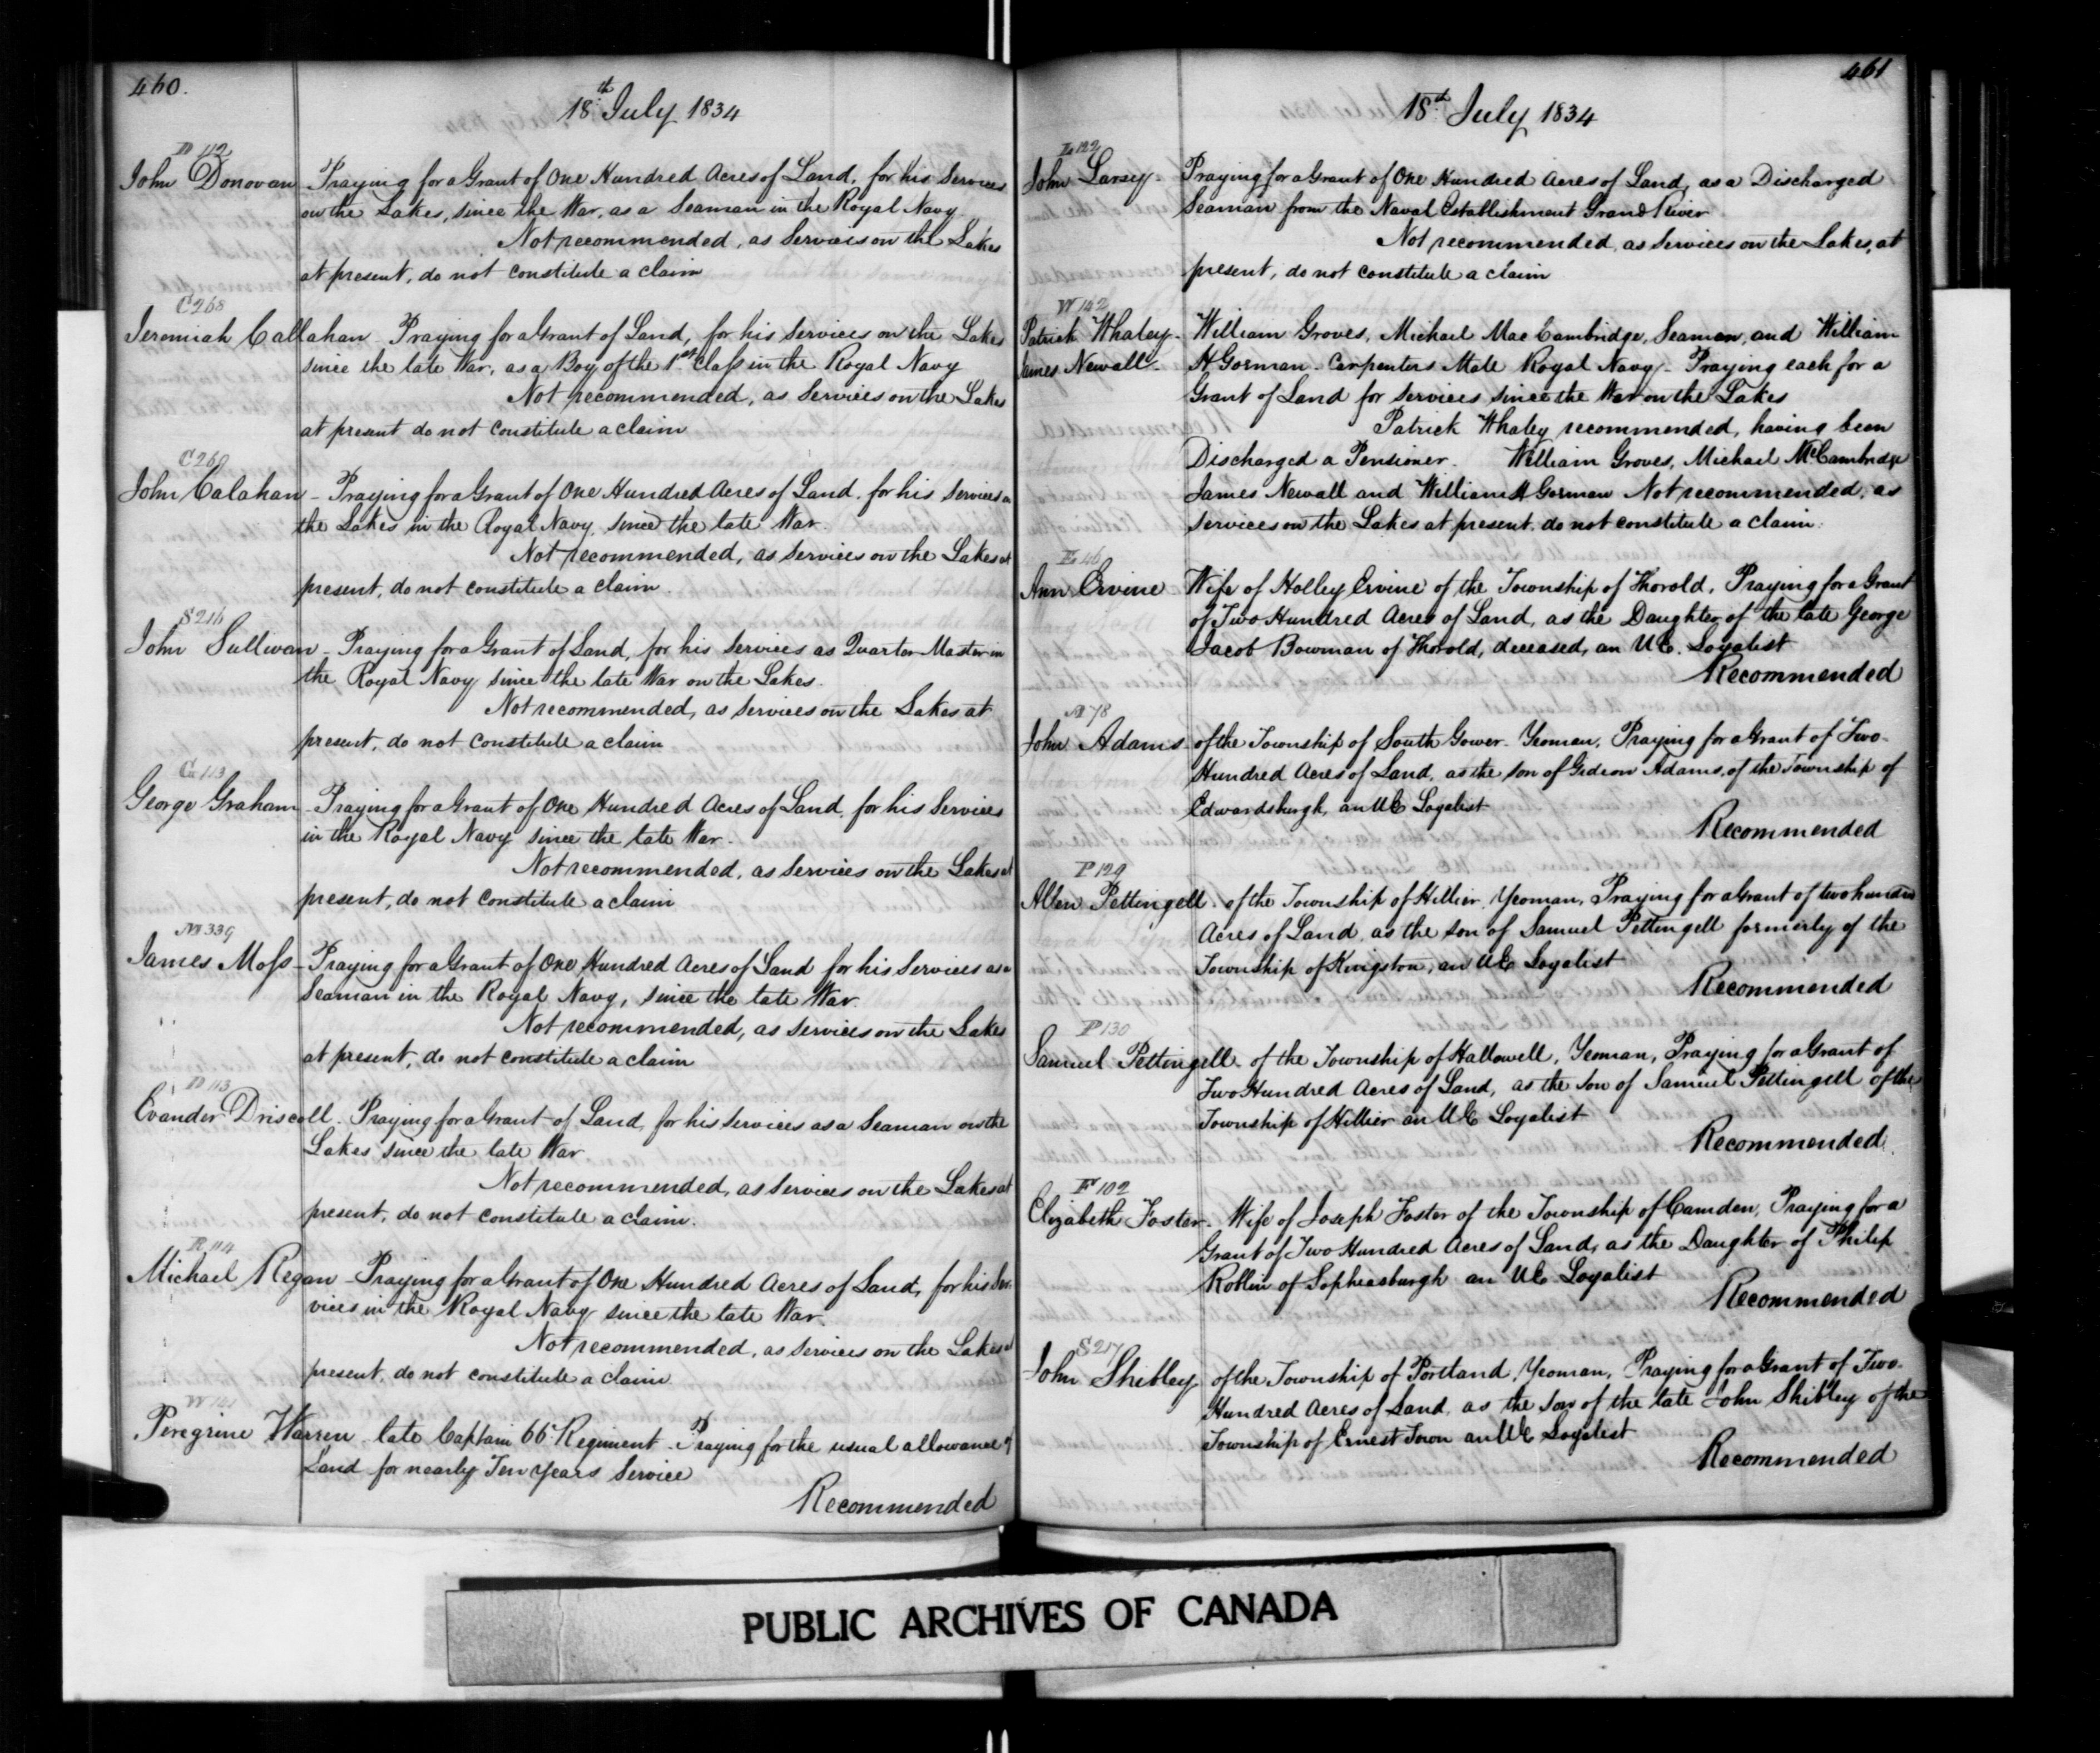 460.
18th July 1834
D 112
John Donovan - Praying for a Grant of One Hundred Acres of Land, for his Services
on the Lakes, since the War, as a Seaman in the Royal Navy.
Not recommended, as Services on the Lakes
at present, do not constitute a claim
C 268
Jeremiah Callahan - Praying for a Grant of Land, for his Services on the Lakes
since the late War, as a Boy of the 1st Class in the Royal Navy
Not recommended, as Services on the Lakes
at present do not constitute a claim
C 269
John Calahan - Praying for a Grant of One Hundred Acres of Land, for his Services on
the Lakes in the Royal Navy, since the late War.
Not recommended, as Services on the Lakes at
present, do not constitute a claim.
S 216
John Sullivan - Praying for a Grant of Land, for his Services as Quarter Master in
the Royal Navy since the late War on the Lakes.
Not recommended, as Services on the Lakes at
present, do not constitute a claim
G 113
George Graham - Praying for a Grant of One Hundred Acres of Land, for his Services
in the Royal Navy since the late War.
Not recommended, as Services on the Lakes at
present, do not constitute a claim
M 339
James Moss - Praying for a Grant of One Hundred Acres of Land for his Services as a
Seaman in the Royal Navy, since the late War.
Not recommended, as Services on the Lakes
at present, do not constitute a claim
D 113
Evander Driscoll - Praying for a Grant of Land, for his Services as a Seaman on the
Lakes since the late War
Not recommended, as Services on the Lakes at
present, do not constitute a claim.
R 114
Michael Regan - Praying for a Grant of One Hundred Acres of Land, for his Ser-
vices in the Royal Navy since the late War.
Not recommended, as Services on the Lakes at
present, do not constitute a claim
W 141
Peregrine Warren late Captain 66th Regiment - Praying for the usual allowance of
Land for nearly Ten years Service
Recommended
461
18th July 1834
L 122
John Larsey - Praying for a Grant of One Hundred Acres of Land, as a Discharged
Seaman from the Naval Establishment Grand River
Not recommended, as Services on the Lakes, at
present, do not constitute a claim
W 142
Patrick Whaley - William Groves, Michael Mac Cambridge, Seamen, and William
James Newall - H Gorman - Carpenters Mate Royal Navy - Praying each for a
Grant of Land for Services since the War on the Lakes
Patrick Whaley recommended, having been
Discharged a Pensioner. William Groves, Michael McCambridge
James Newall and William H Gorman Not recommended, as
services on the Lakes at present, do not constitute a claim.
E 46
Ann Ervine Wife of Holley Ervine of the Township of Thorold, Praying for a Grant
of Two Hundred Acres of Land, as the Daughter of the late George
Jacob Bowman of Thorold, deceased, an U E. Loyalist
Recommended
A 78
John Adams - of the Township of South Gower - Yeoman, Praying for a Grant of Two
Hundred Acres of Land, as the son of Gideon Adams, of the Township of
Edwardsburgh, an U E Loyalist
Recommended
P 129
Allen Pettingell - of the Township of Hillier, Yeoman, Praying for a Grant of two hundred
Acres of Land, as the son of Samuel Pettingell formerly of the
Township of Kingston, an U E Loyalist
Recommended
P 130
Samuel Pettingell - of the Township of Hallowell, Yeoman, Praying for a Grant of
Two Hundred Acres of Land, as the son of Samuel Pettingell of the
Township of Hillier an U E Loyalist
Recommended
F 102
Elizabeth Foster - Wife of Joseph Foster of the Township of Camden, Praying for a
Grant of Two Hundred Acres of Land, as the Daughter of Philip
Roblin of Sophiasburgh an U E Loyalist
Recommended
S 217
John Shibley of the Township of Portland, Yeoman, Praying for a Grant of Two
Hundred Acres of Land, as the son of the late John Shibley of the
Township of Ernest Town an U E Loyalist
Recommended
PUBLIC ARCHIVES OF CANADA